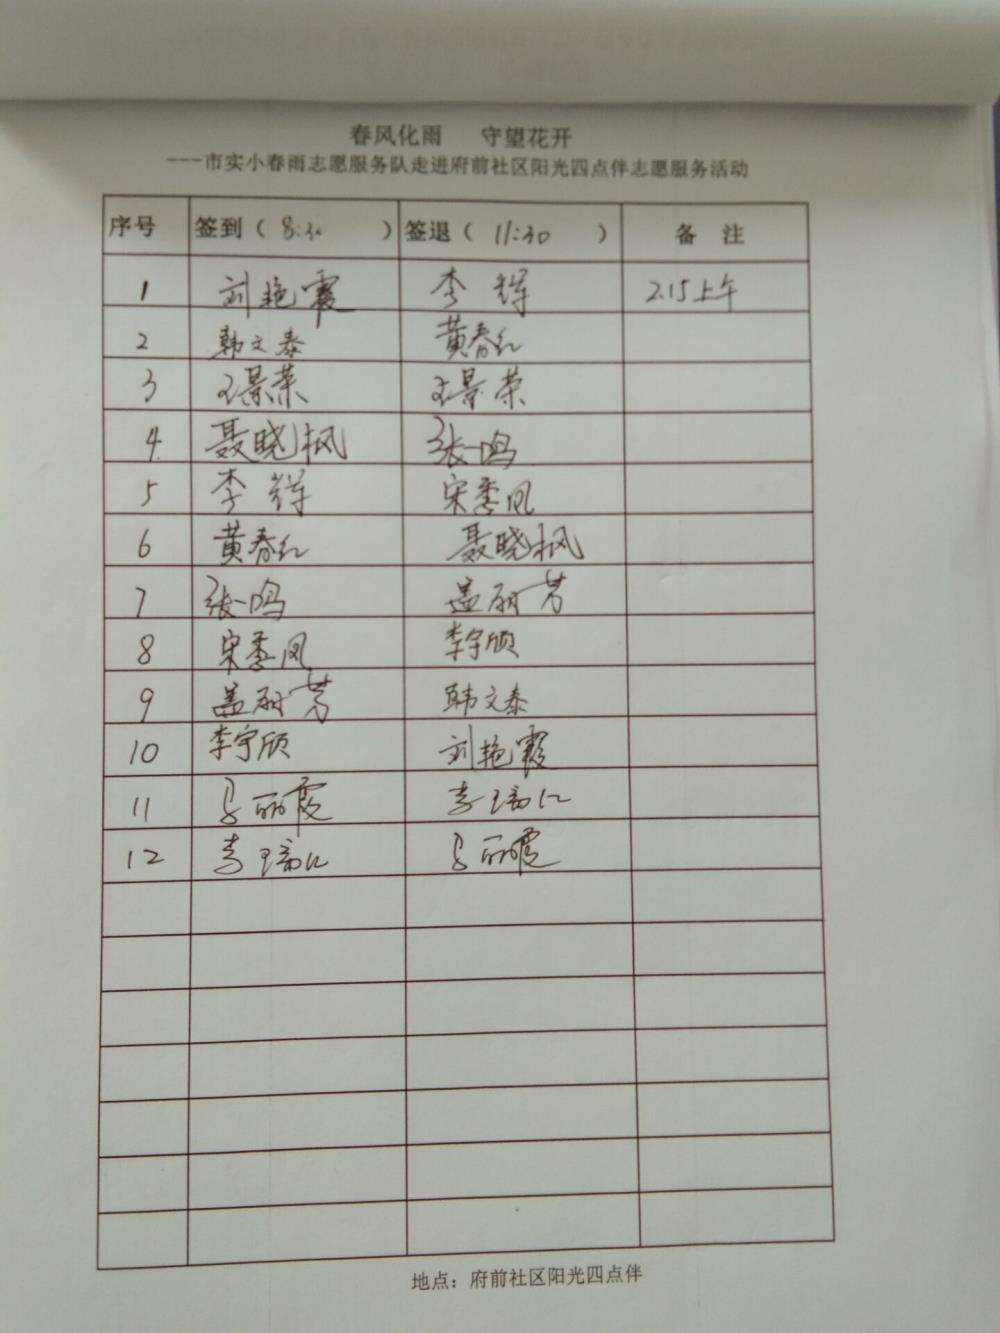 春风化雨 守望花开
---市实小春雨志愿服务队走进府前社区阳光四点伴志愿服务活动
序号 签到（8:30） 签退（11:30） 备 注
1 刘艳霞 李辉 2.15上午
2 韩文泰 黄春红
3 王景荣 王景荣
4 聂晓枫 张鸣
5 李辉 宋季凤
6 黄春红 聂晓枫
7 张鸣 盖丽芳
8 宋季凤 李宇欣
9 盖丽芳 韩文泰
10 李宇欣 刘艳霞
11 马丽霞 李瑞仁
12 李瑞仁 马丽霞
地点：府前社区阳光四点伴